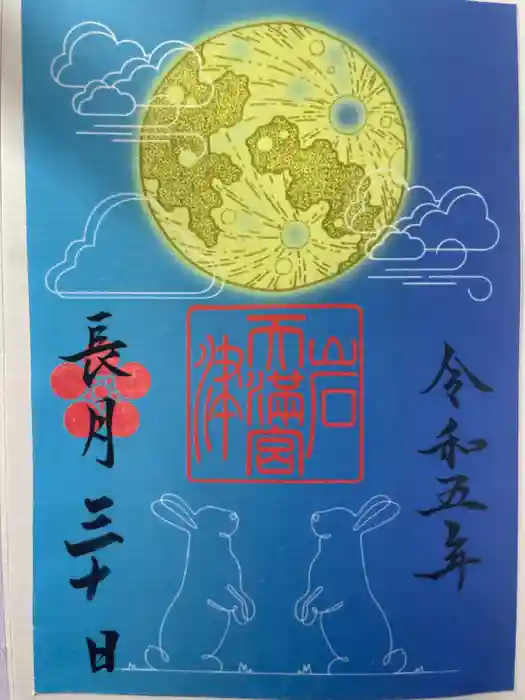 令和五年
岩津天満宮
長月三十日